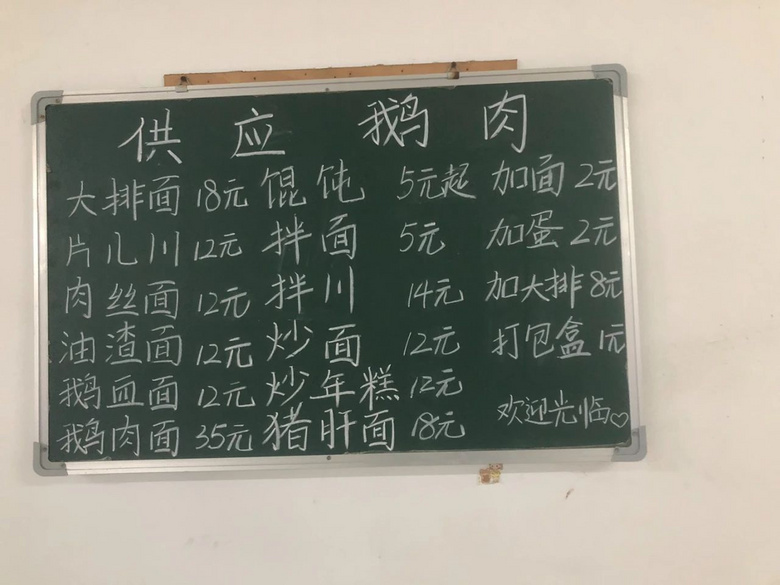 供应鹅肉
大排面 18元 馄饨 5元起 加面 2元
片儿川 12元 拌面 5元 加蛋 2元
肉丝面 12元 拌川 14元 加大排 8元
油渣面 12元 炒面 12元 打包盒 1元
鹅血面 12元 炒年糕 12元
鹅肉面 35元 猪肝面 18元 欢迎光临♡